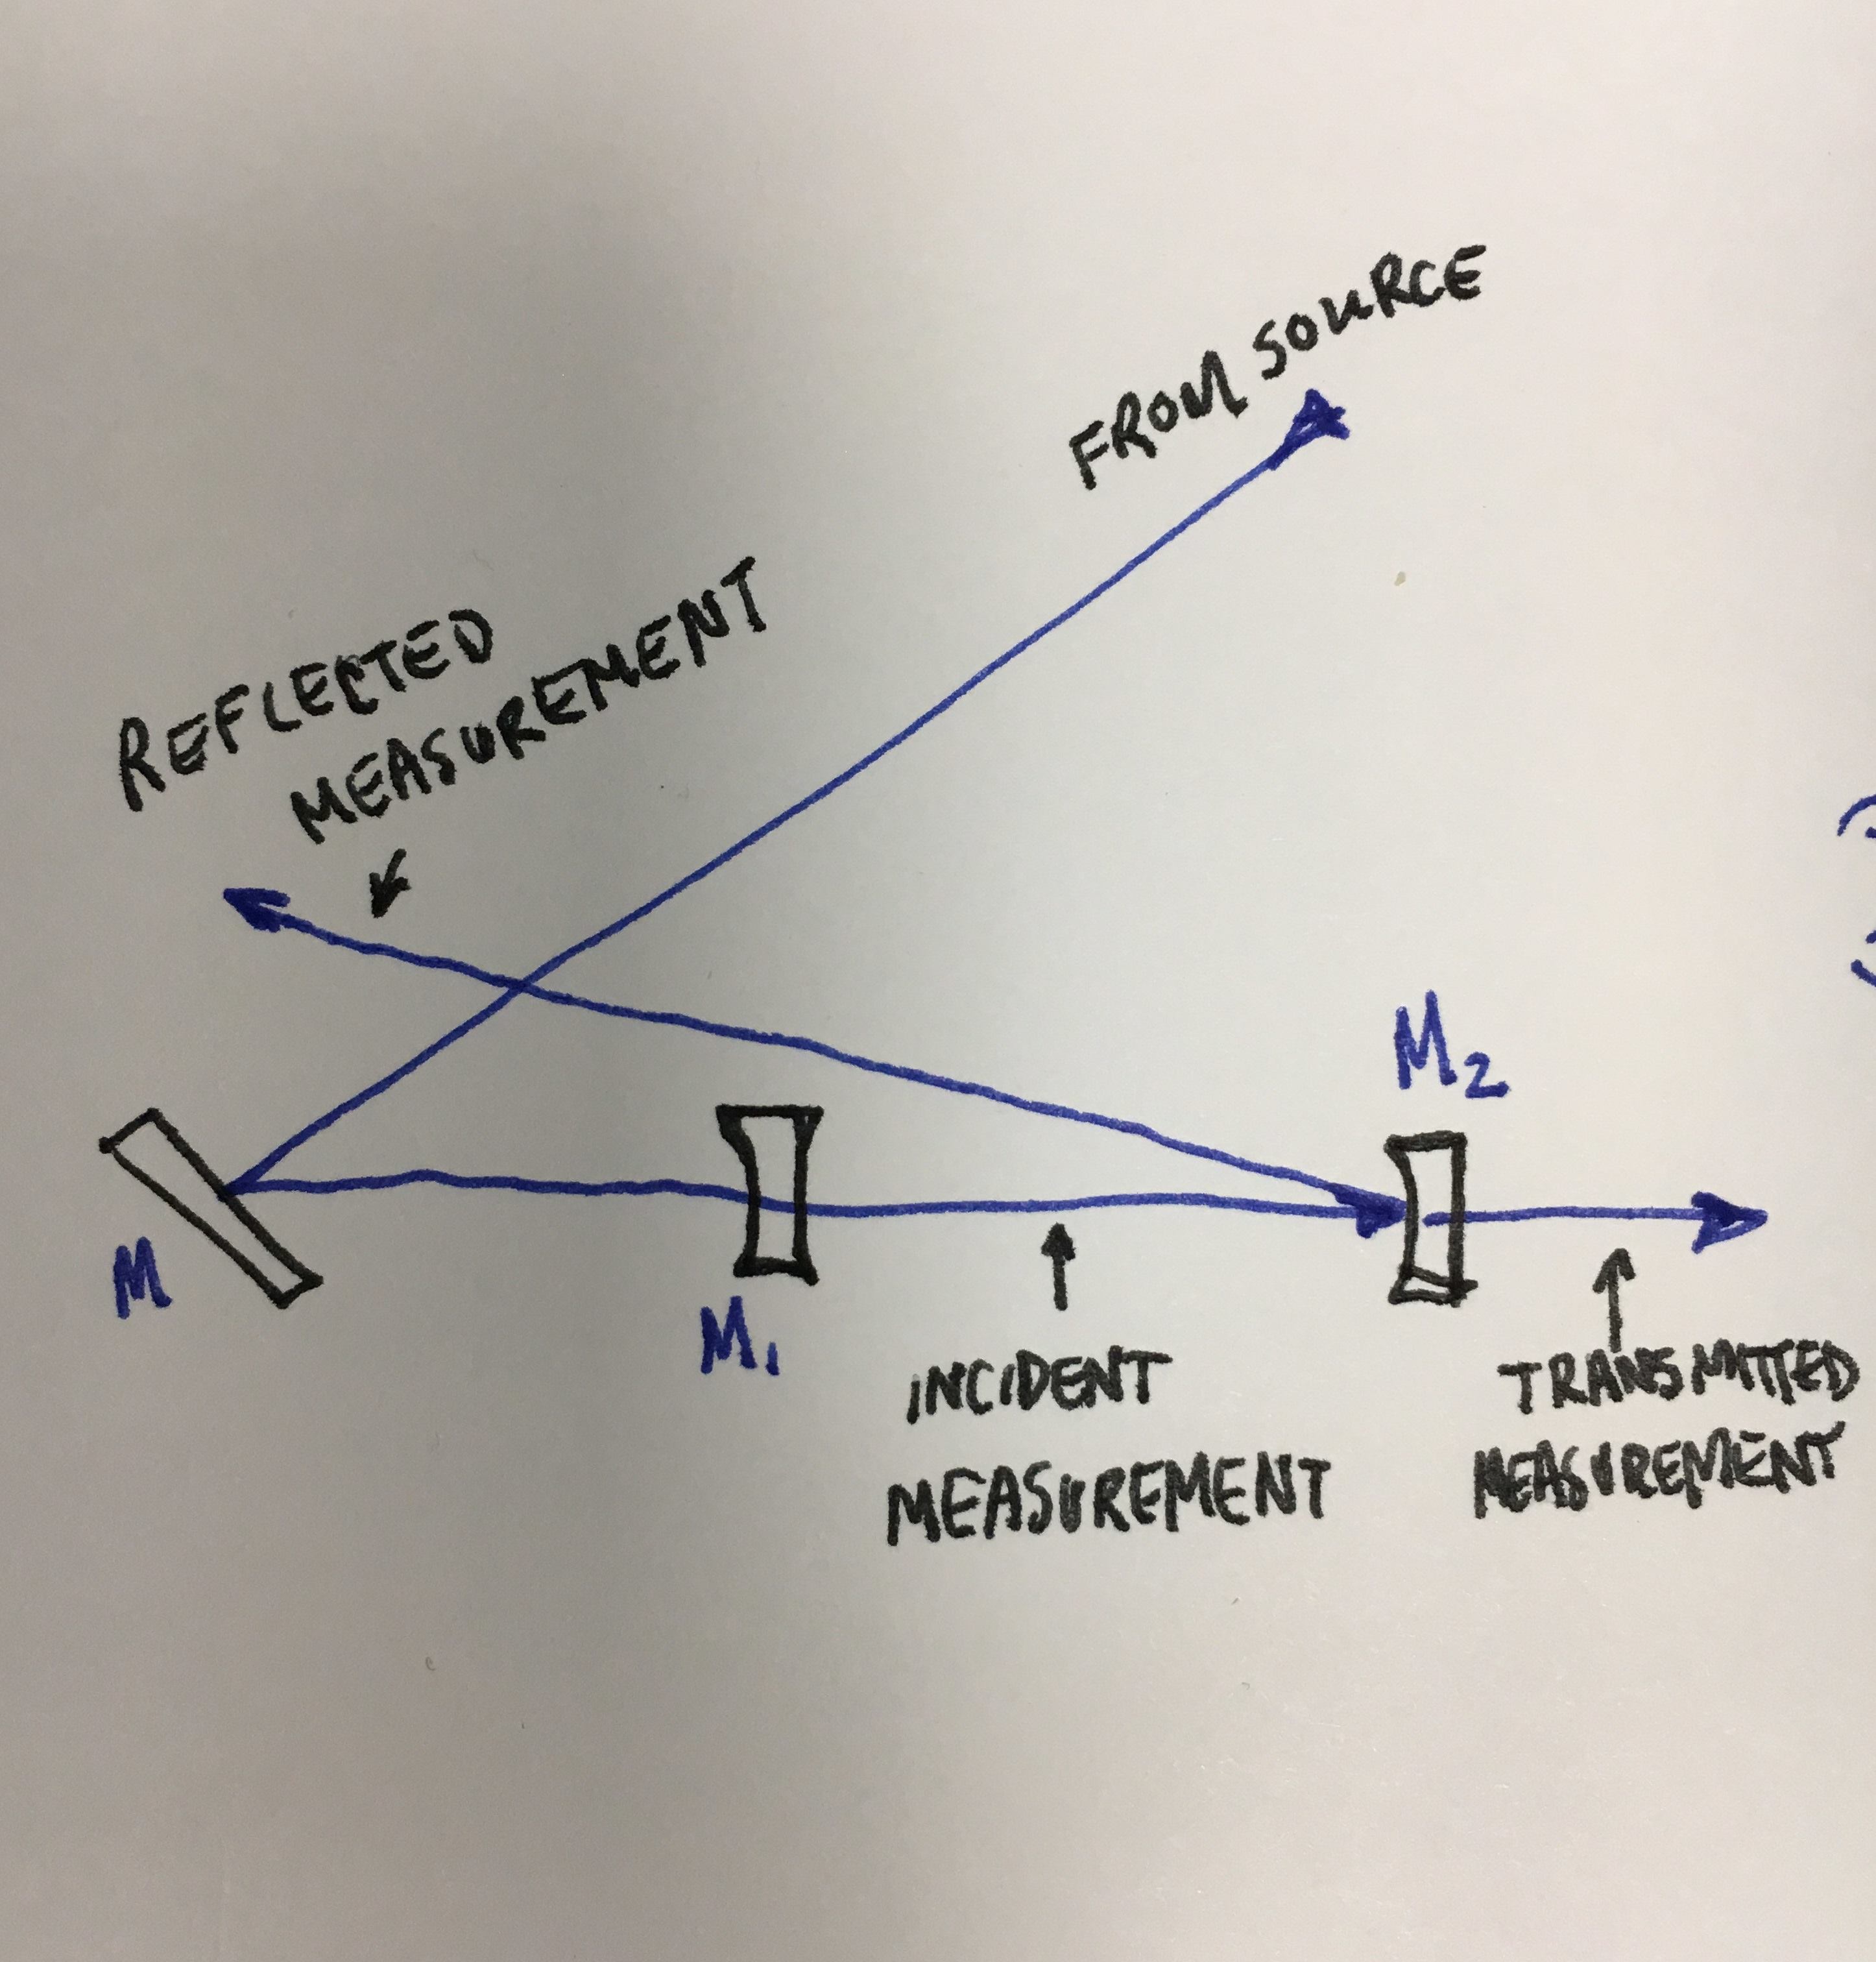 FROM SOURCE
REFLECTED
MEASUREMENT
M₂
M
M₁
INCIDENT
MEASUREMENT
TRANSMITTED
MEASUREMENT